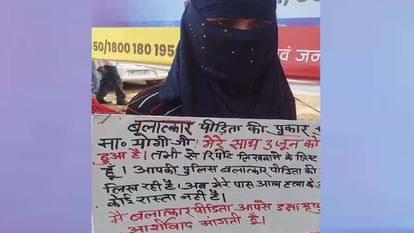 50/1800 180 195
वं जन
बलात्कार पीड़िता की पुकार
मा० योगी जी मेरे साथ 3 जून को
हुआ है। तभी से रिपोर्ट लिखवाने के लिए
हूँ। आपकी पुलिस बलात्कार पीड़िता की
लिख रही है। अब मेरे पास आत्म हत्या के अ
कोई रास्ता नहीं है।
मैं बलात्कार पीड़िता आपसे इसी मृत्यु
आर्शीवाद मांगती है।